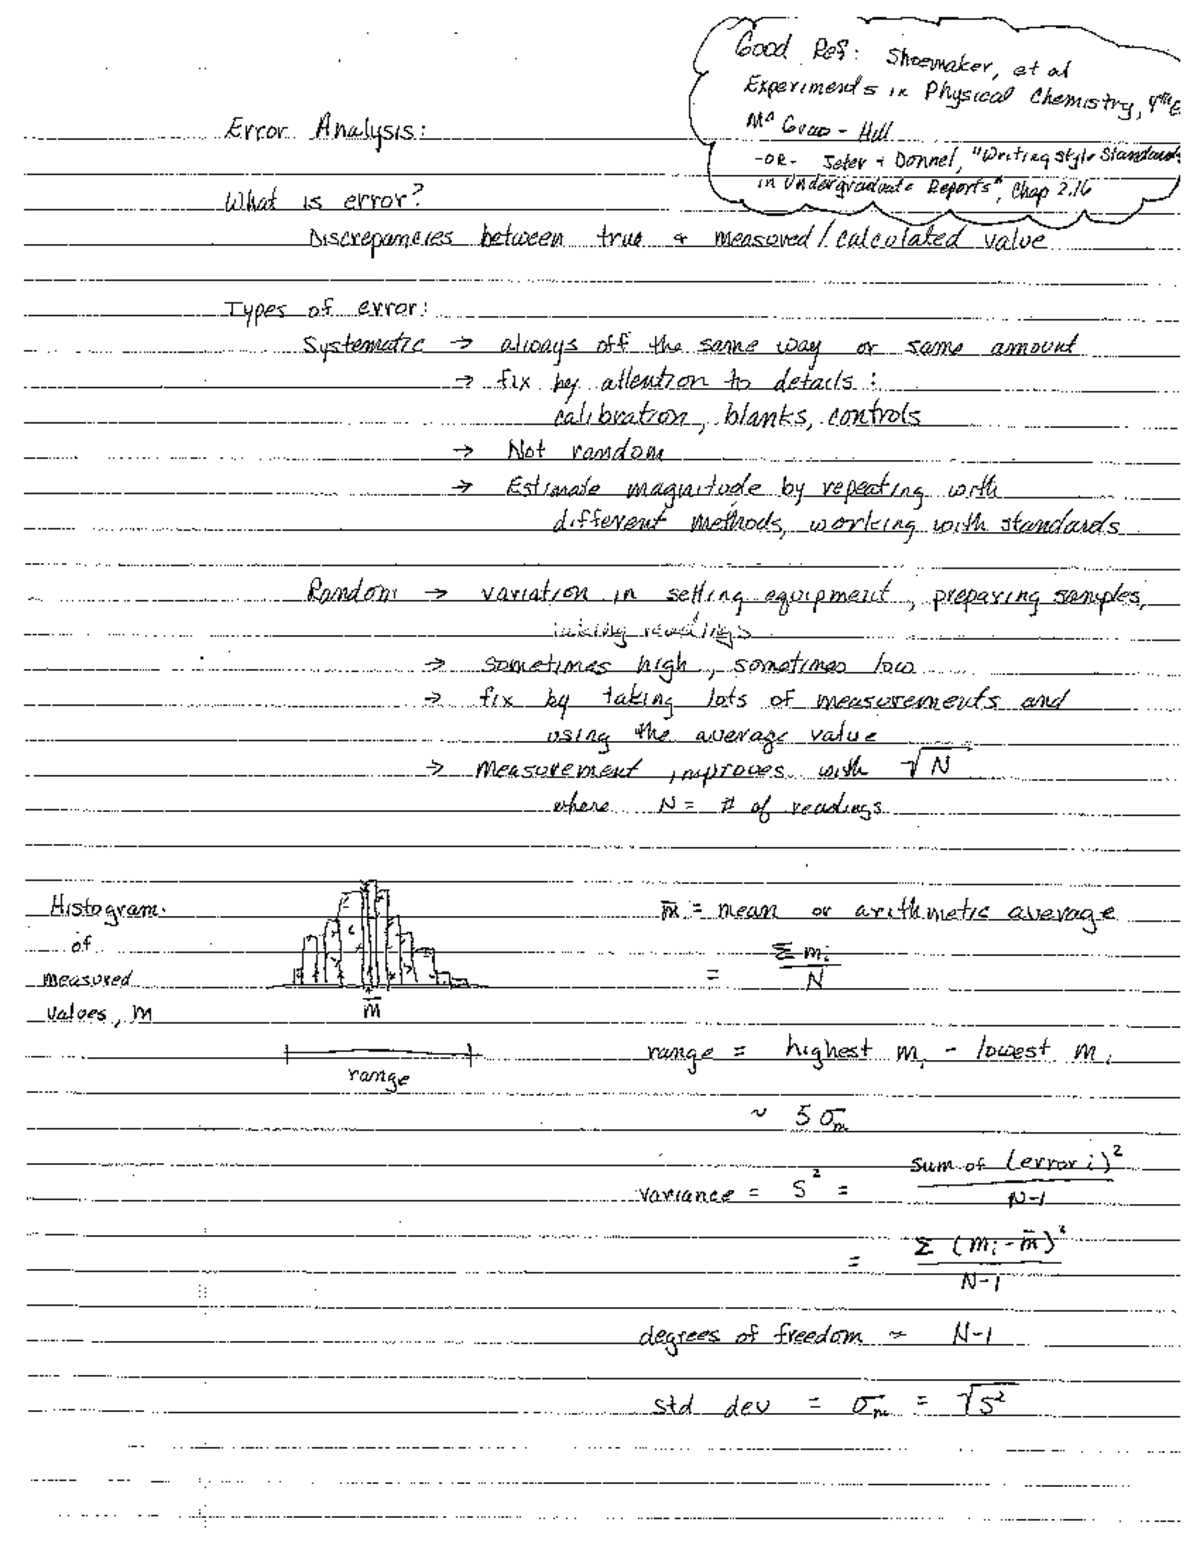 Good Ref: Shoemaker, et al
Experiments in Physical Chemistry, 4th E
Mc Graw-Hill
-OR- Jeter + Donnel, "Writing Style Standards
in Undergraduate Reports", Chap 2.16
Error Analysis:
What is error?
Discrepancies between true + measured/calculated value
Types of error:
Systematic → always off the same way or same amount
→ fix by attention to details:
calibration, blanks, controls
→ Not random
→ Estimate magnitude by repeating with
different methods, working with standards
Random → variation in setting equipment, preparing samples,
taking readings
→ sometimes high, sometimes low
→ fix by taking lots of measurements and
using the average value
→ measurement improves with √N
where N = # of readings
Histogram
of
measured
values, m
m̄
range
m̄ = mean or arithmetic average
= Σ mᵢ / N
range = highest mᵢ - lowest mᵢ
~ 5 σₘ
variance = S² = sum of (error i)² / N-1
= Σ (mᵢ - m̄)² / N-1
degrees of freedom = N-1
std dev = σₘ = √S²